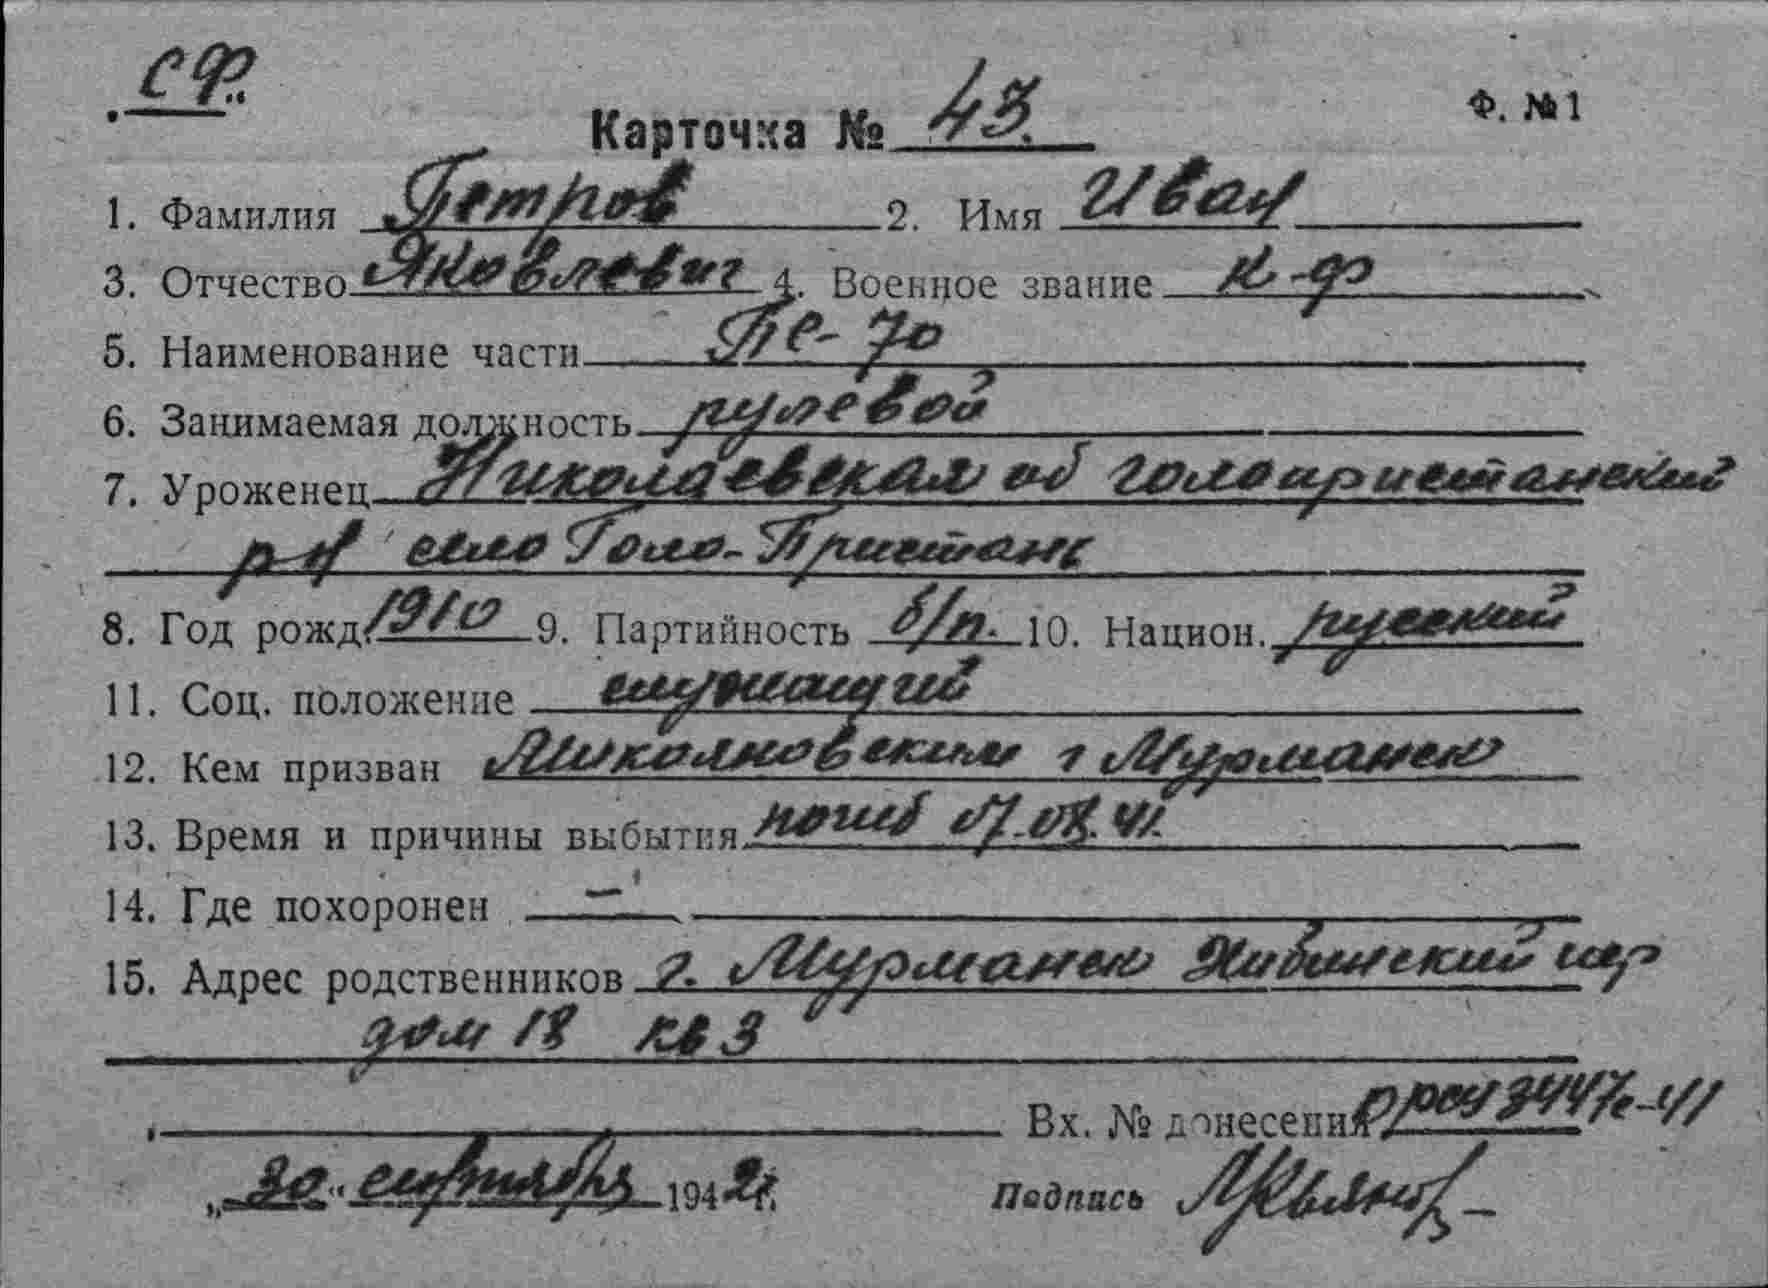 СФ.
Карточка № 43. Ф. №1
1. Фамилия Петров 2. Имя Иван
3. Отчество Яковлевич 4. Военное звание к-ф
5. Наименование части 70
6. Занимаемая должность рулевой
7. Уроженец Николаевская об Голопристанский
р-н село Голо-Пристань
8. Год рожд. 1910 9. Партийность б/п. 10. Национ. русский
11. Соц. положение служащий
12. Кем призван г Мурманск
13. Время и причины выбытия погиб 07.08.41.
14. Где похоронен —
15. Адрес родственников г. Мурманск Хибинский пер
дом 18 кв 3
Вх. № донесения
„30“ сентября 1942г. Подпись